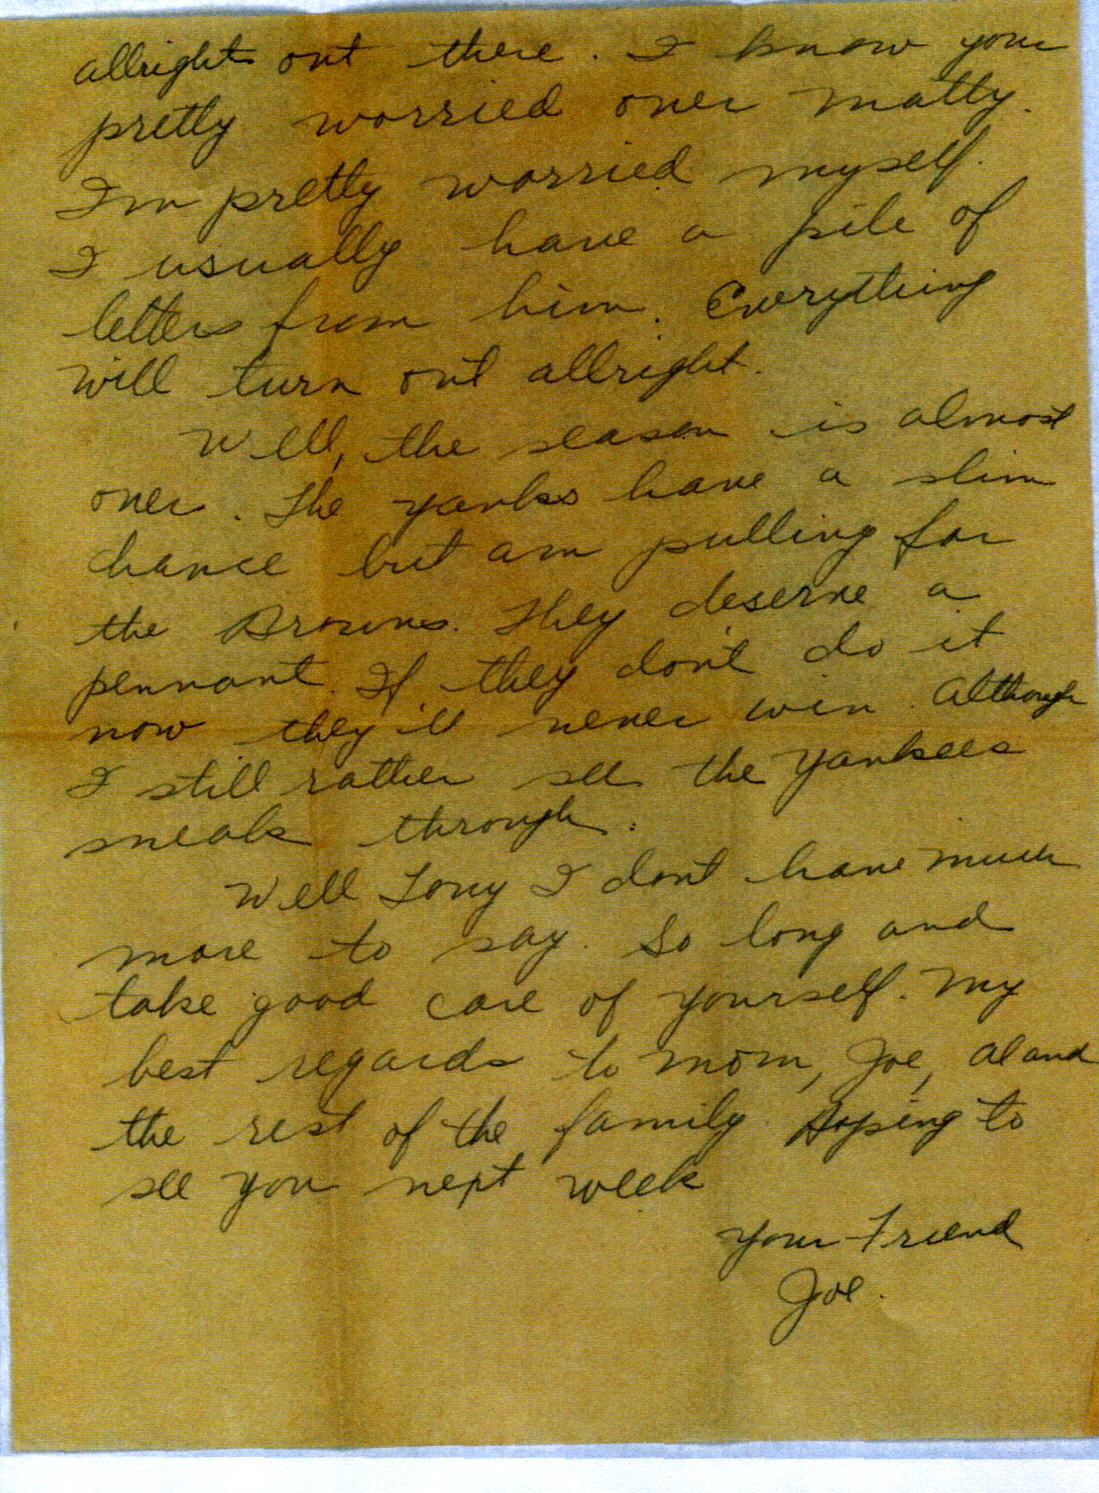 allright out there. I know your
pretty worried over Matty.
I'm pretty worried myself.
I usually have a pile of
letters from him. Everything
will turn out allright.
Well, the season is almost
over. The Yanks have a slim
chance but am pulling for
the Browns. They deserve a
pennant. If they don't do it
now they'll never win. Although
I still rather see the Yankees
sneak through.
Well Tony I don't have much
more to say. So long and
take good care of yourself. My
best regards to mom, Joe, Al and
the rest of the family. Hoping to
see you next week
Your Friend
Joe.